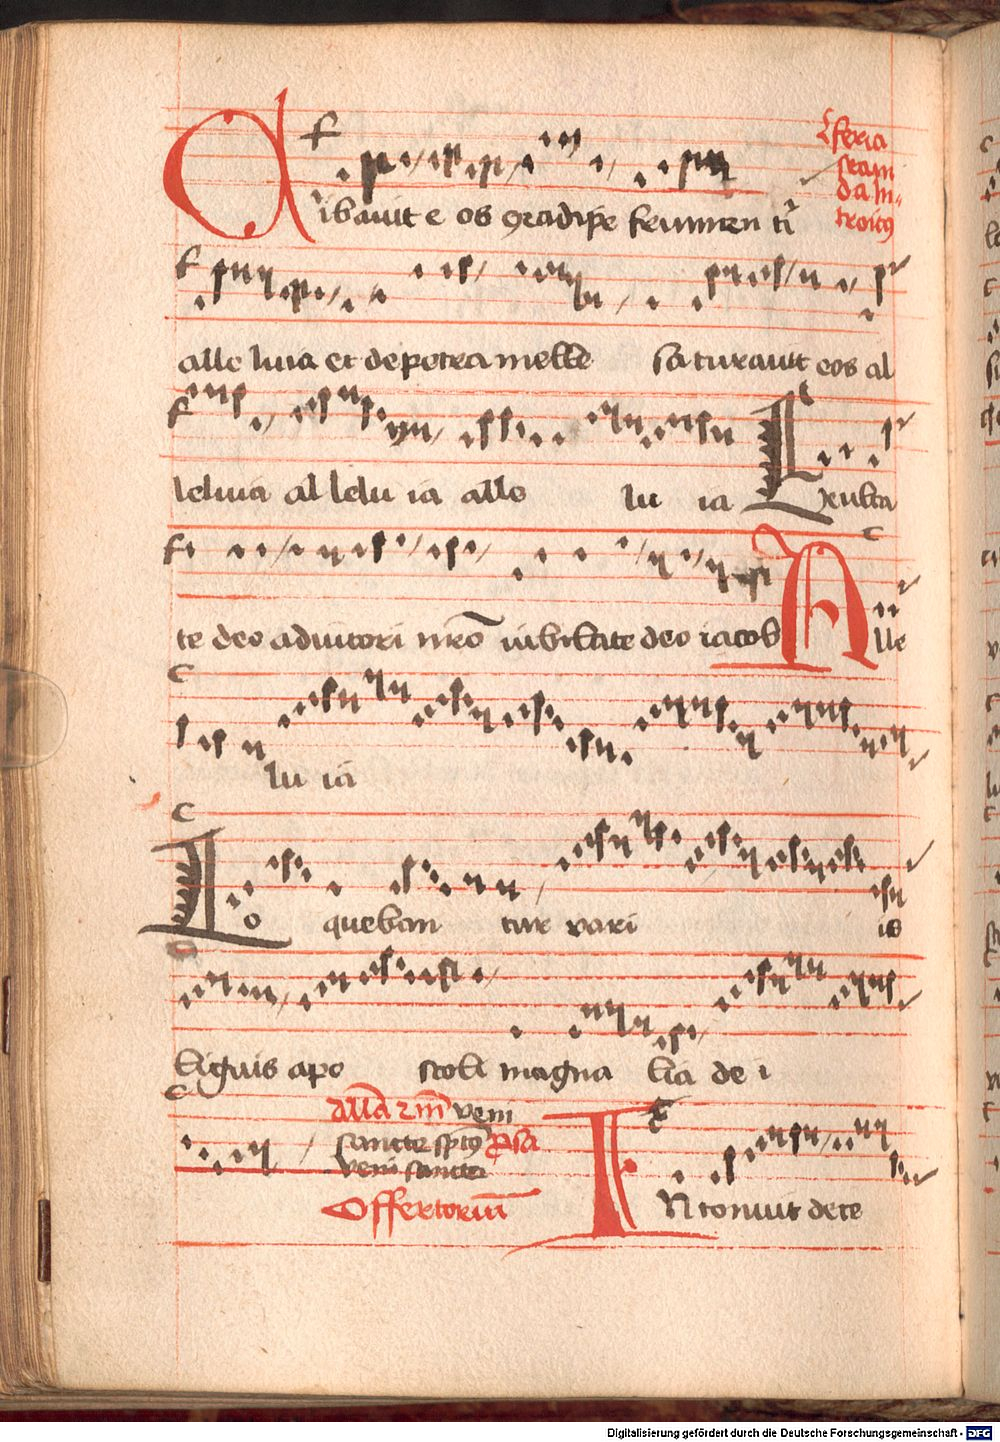 feria
scam
da In¬
troitus
Cibauit e os ex adipe frumen ti
alle luia et depetra melle sa turauit eos al
leluia al lelu ia alle lu ia Exulta
te deo adiutori nr̄o iubilate deo iacob Alle
lu ia
Lo queban tur vari is
liguis apo stoli magna lia de i
Allā 2m̄ veni
sancte spūs Psa
veni sancte
Offertoriū In tonuit dece
Digitalisierung gefördert durch die Deutsche Forschungsgemeinschaft - DFG